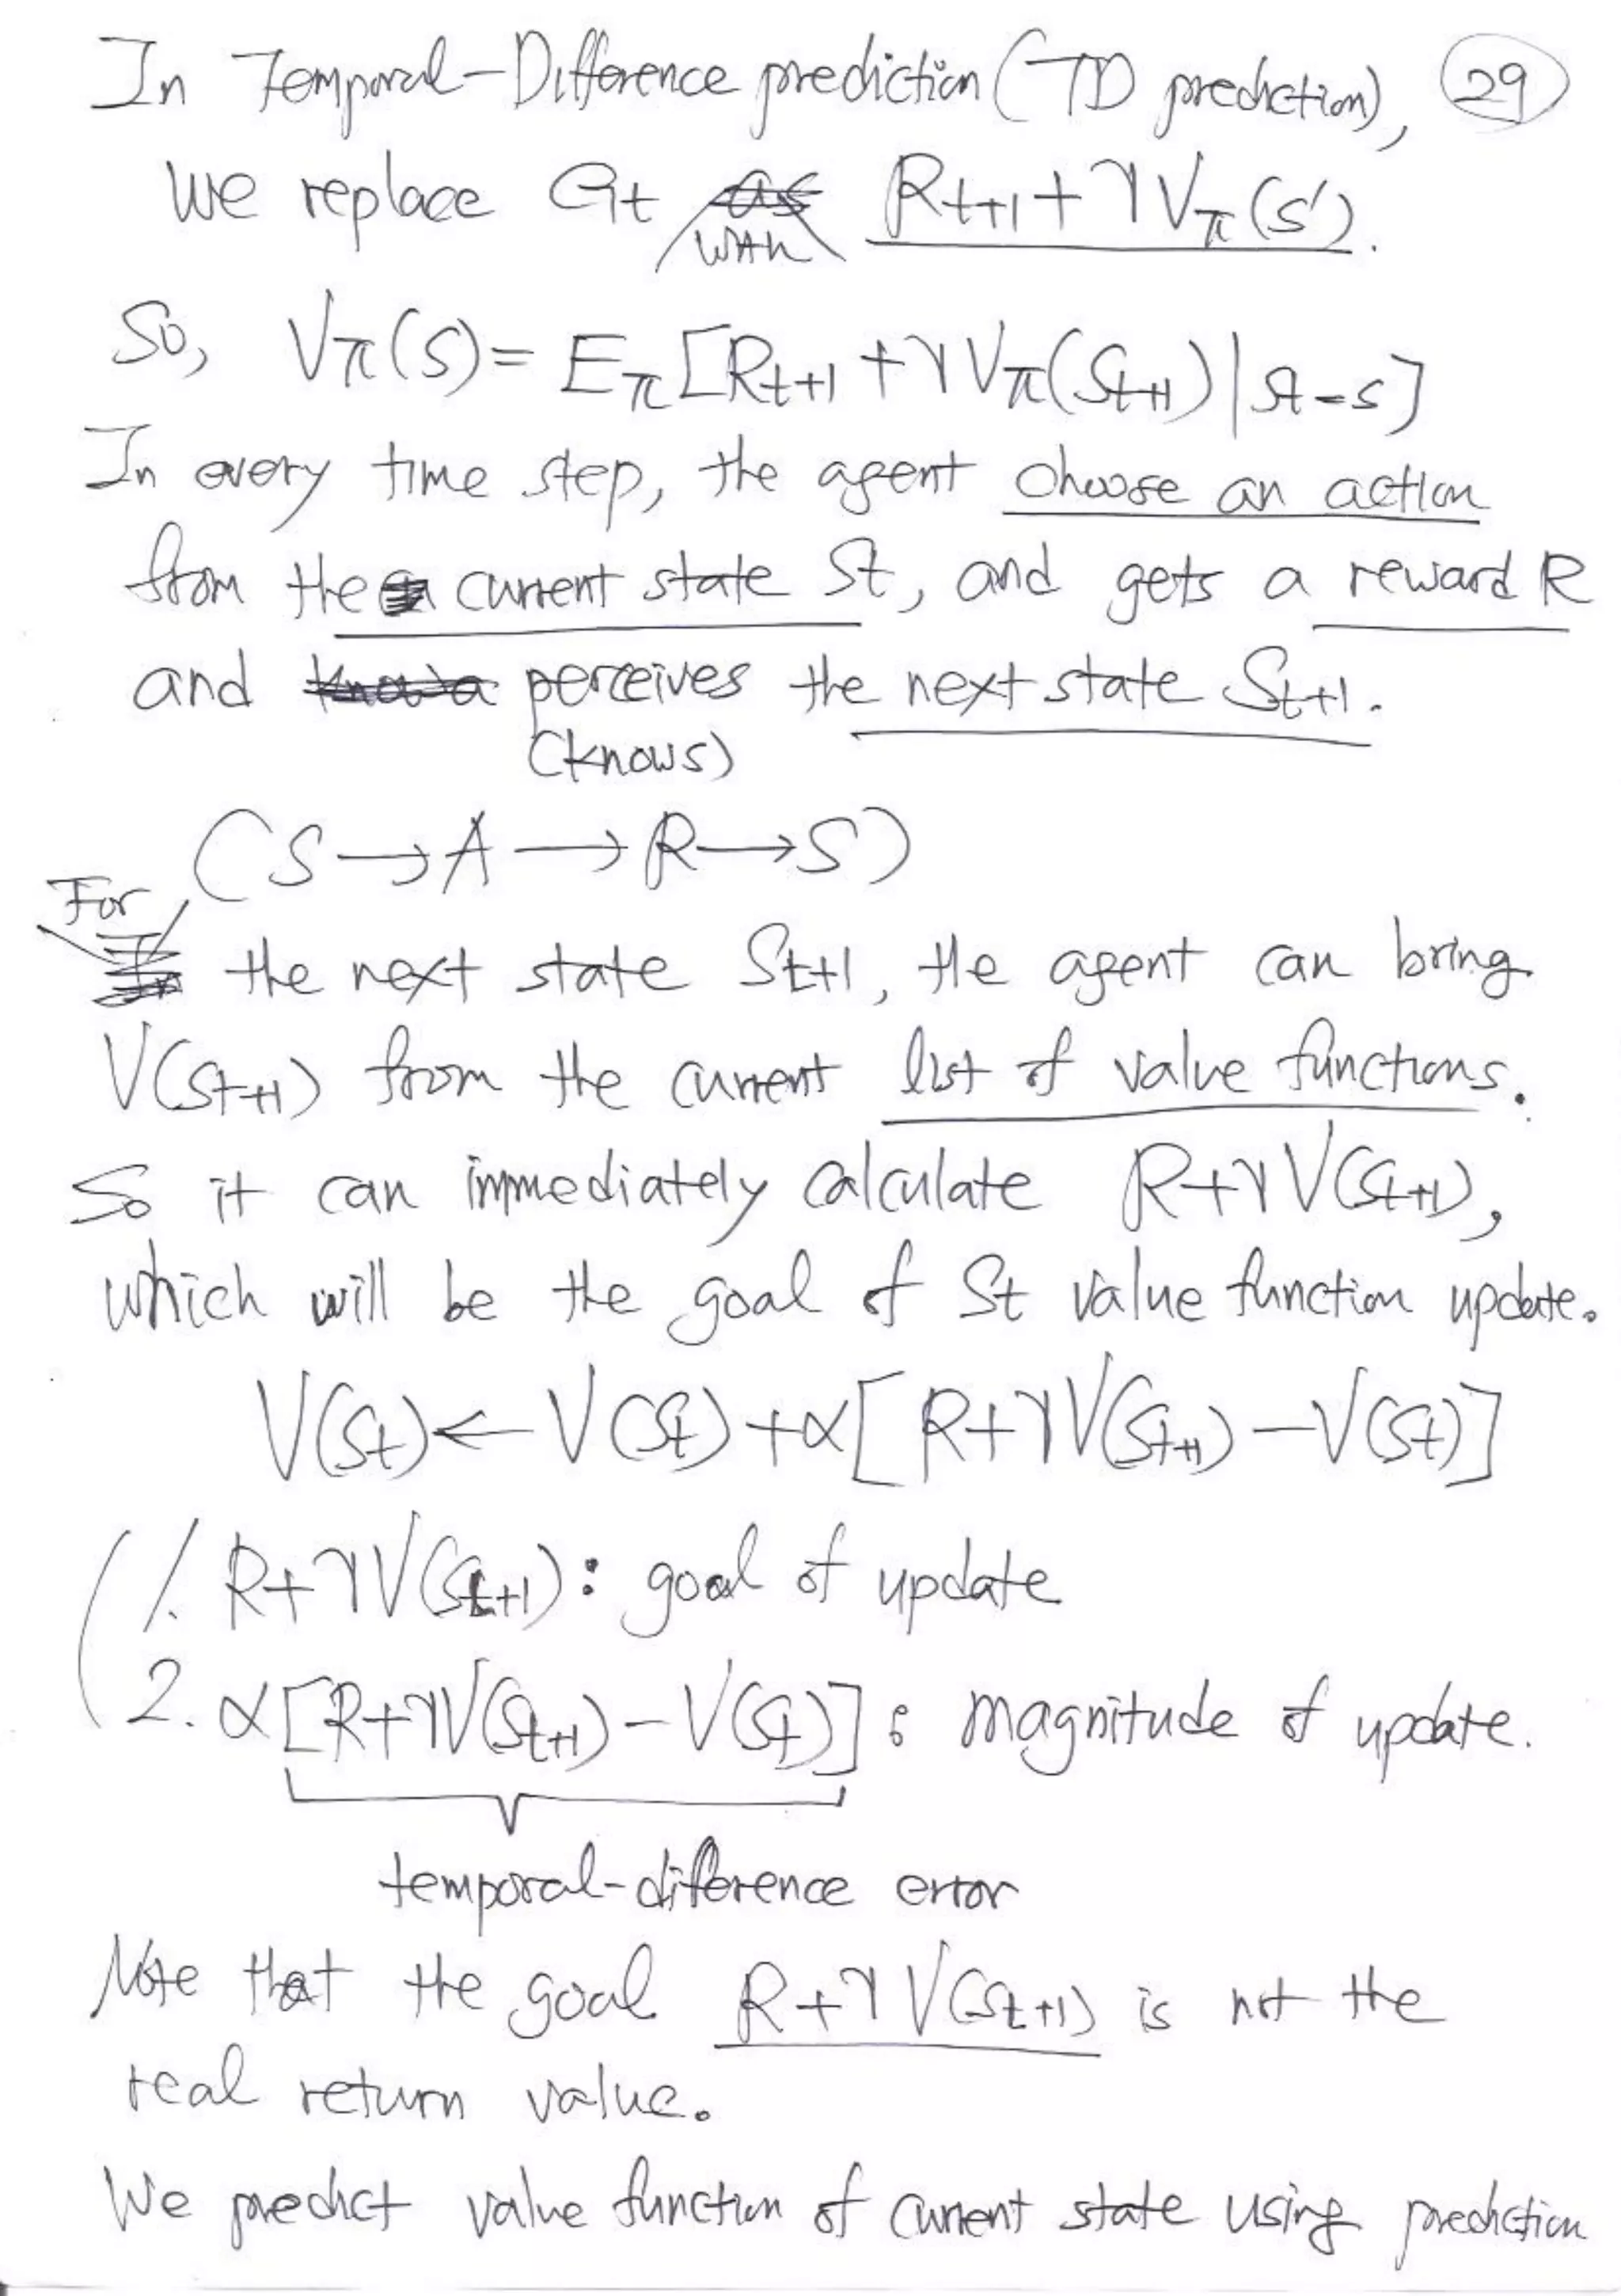 In Temporal-Difference prediction (TD prediction), 29
we replace Gt with Rt+1 + γVπ(s').
So, Vπ(s) = Eπ[Rt+1 + γVπ(St+1) | St=s]
In every time step, the agent choose an action
from the current state St, and gets a reward R
and perceives the next state St+1.
(knows)
(S → A → R → S)
For the next state St+1, the agent can bring
V(St+1) from the current list of value functions.
So it can immediately calculate R+γV(St+1),
which will be the goal of St value function update.
V(St) ← V(St) + α[R+γV(St+1) − V(St)]
1. R+γV(St+1): goal of update
2. α[R+γV(St+1) − V(St)]: magnitude of update.
temporal-difference error
Note that the goal R+γV(St+1) is not the
real return value.
We predict value function of current state using prediction